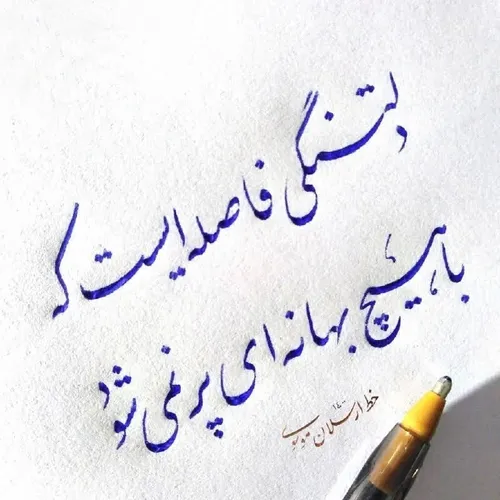 دلتنگی فاصله ایست که
با هیچ بهانه ای پر نمی شود
خط ارسلان
۱۴۰۰